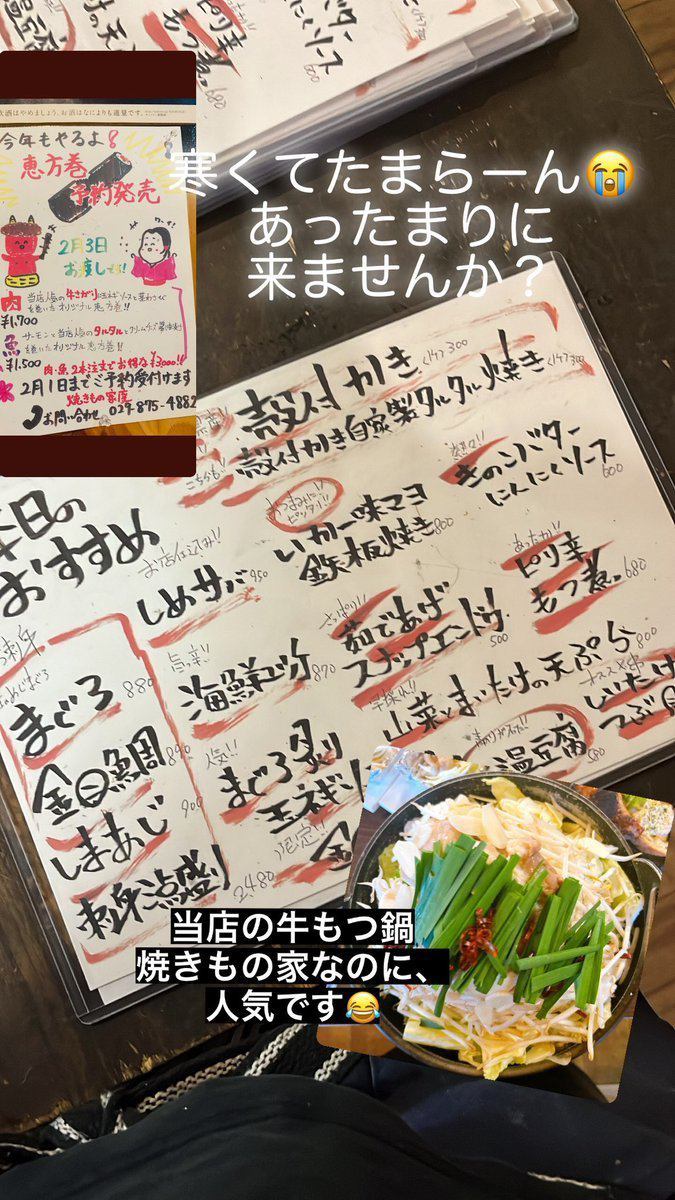 もつ煮。680
ソース
600
飲酒はやめましょう。お酒はなによりも適量です。
今年もやるよ!
恵方巻
予約発売
2月3日
お渡しです!
肉 当店人気の牛さがり
¥1,700
魚 サーモンと当店人気のタルタルと
¥1,500 肉・魚 2本注文でお得な¥3,000!!
2月1日までご予約受付けます
焼きもの家度
お問い合わせ 029-875-4882
寒くてたまらーん😭
あったまりに
来ませんか?
殻付かき 1ケ300
殻付かき自家製タルタル焼き 1ケ300
こちらも!!
きのこバター
にんにくソース
600
おつまみに!!
ピッタリ!!
いか一味マヨ
鉄板焼き 800
本日の
おすすめ
お店仕込み!!
しめサバ 950
あったか!!
ピリ辛
もつ煮。680
さっぱり!!
茹であげ
スナップエンドウ
500
海鮮
870
山菜とまいたけの天ぷら 800
しいたけ
つぶ
まぐろ 880
金目鯛 890
しまあじ 900
刺身3点盛り 2480
人気!!
まぐろ炙り
玉ネギ
限定!!
金
温豆腐
580
当店の牛もつ鍋
焼きもの家なのに、
人気です😂